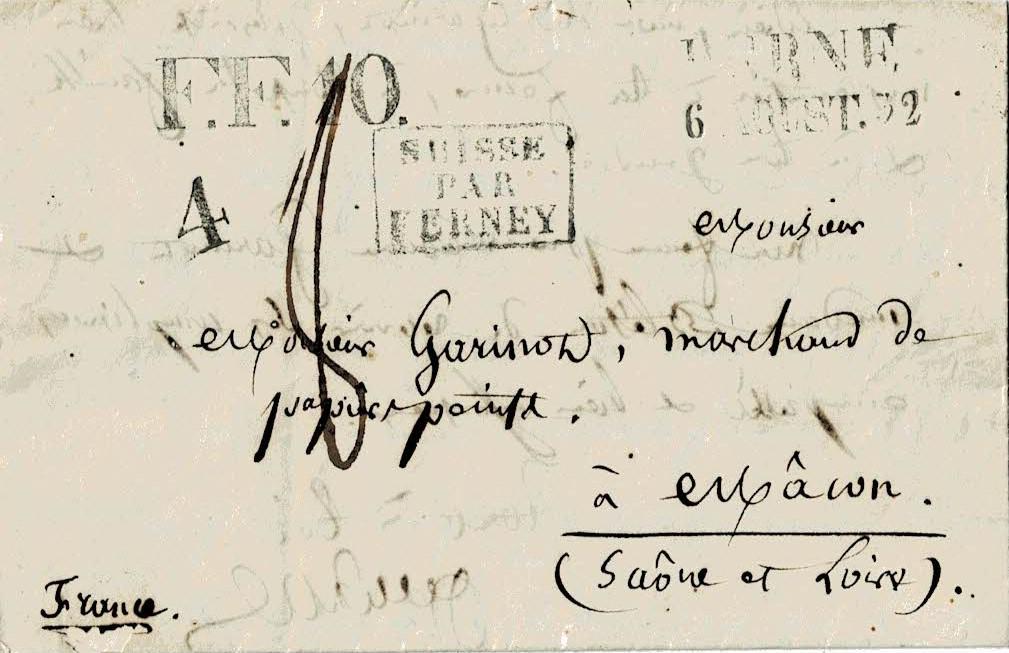 F.F.10.
BERNE
6 AUGUST. 32
SUISSE
PAR
FERNEY
4
Monsieur
Monsieur Garinot, marchand de
papiers peints.
à Mâcon.
(Saône et Loire).
France.